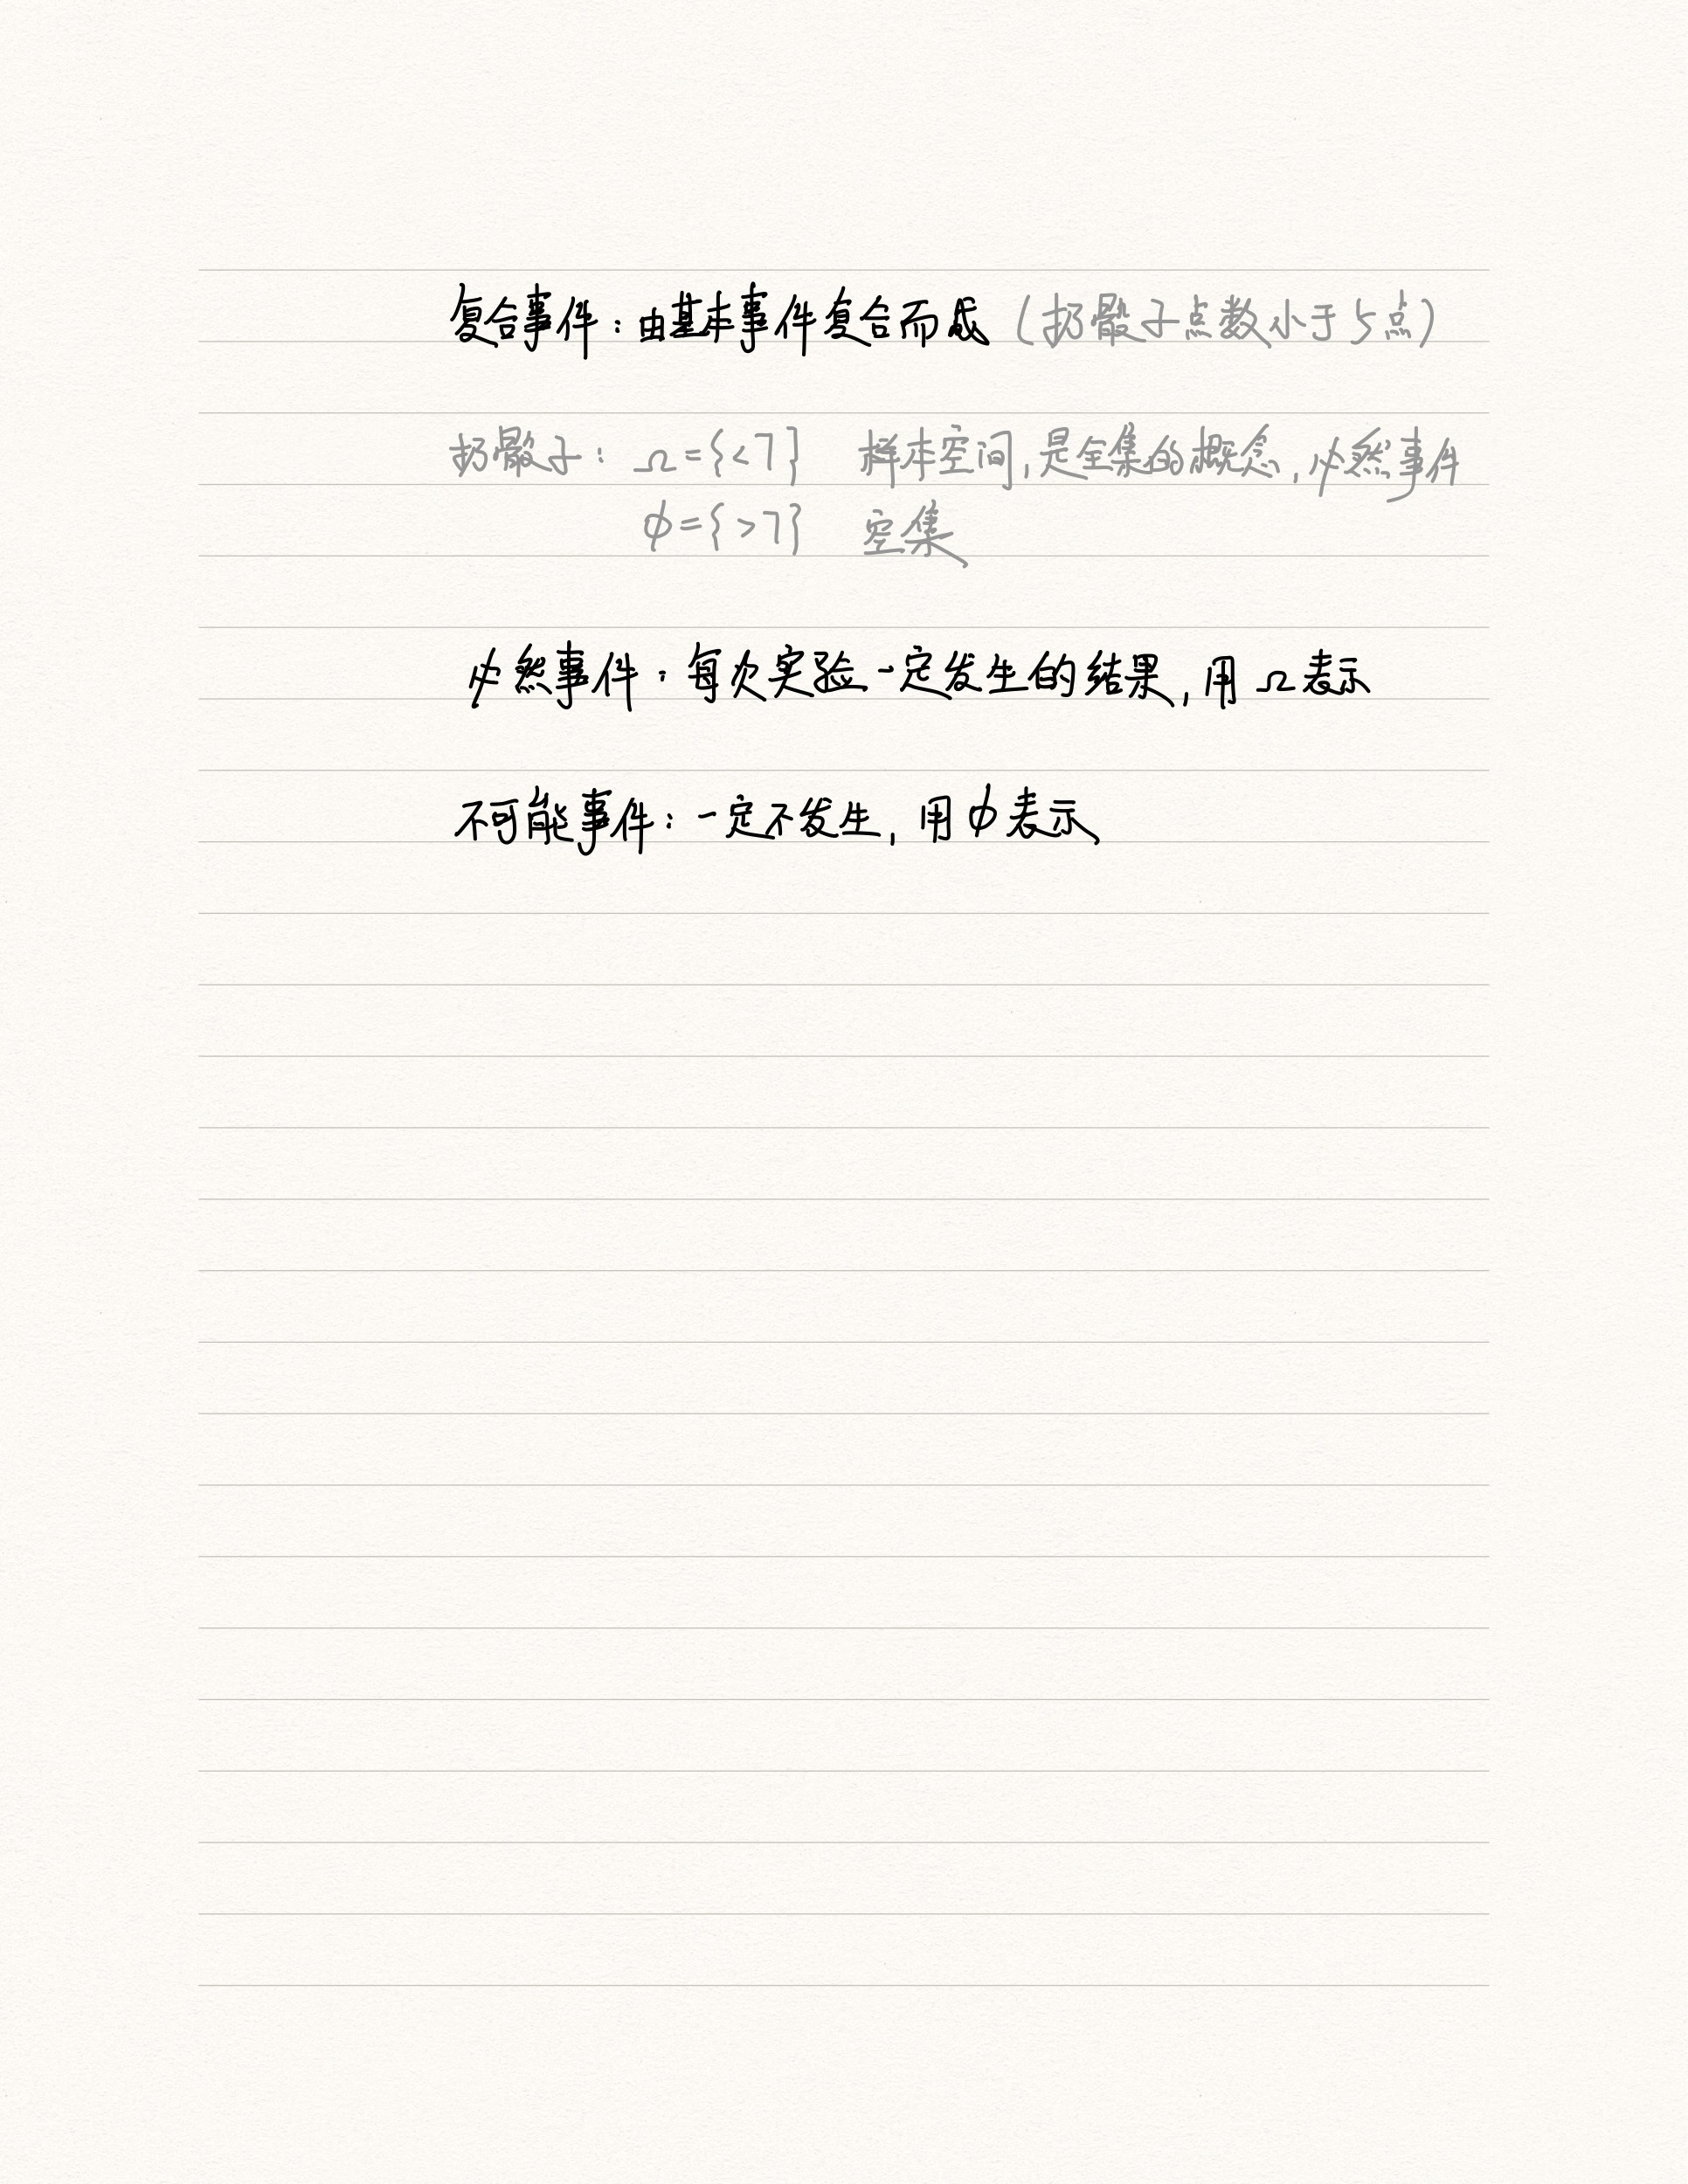 复合事件：由基本事件复合而成（扔骰子点数小于5点）
扔骰子：Ω={<7} 样本空间，是全集的概念，必然事件
φ={>7} 空集
必然事件：每次实验一定发生的结果，用Ω表示
不可能事件：一定不发生，用φ表示